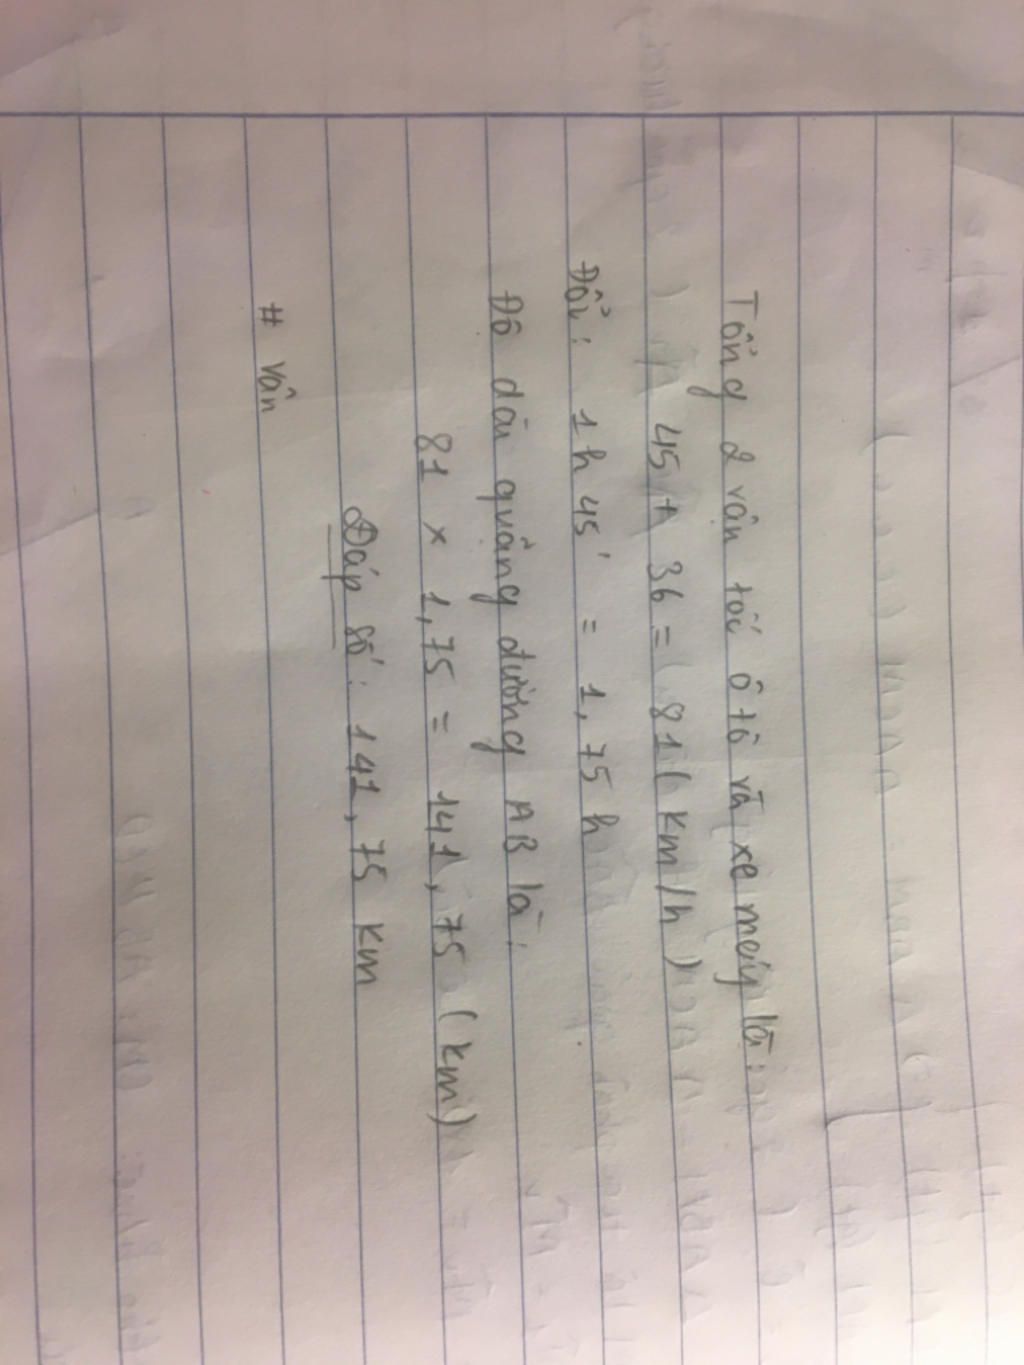 Tổng 2 vận tốc ô tô và xe máy là:
45 + 36 = 81 ( km/h )
Đổi: 1h45' = 1,75 h
Độ dài quãng đường AB là:
81 × 1,75 = 141,75 (km)
Đáp số: 141,75 km
# Vân